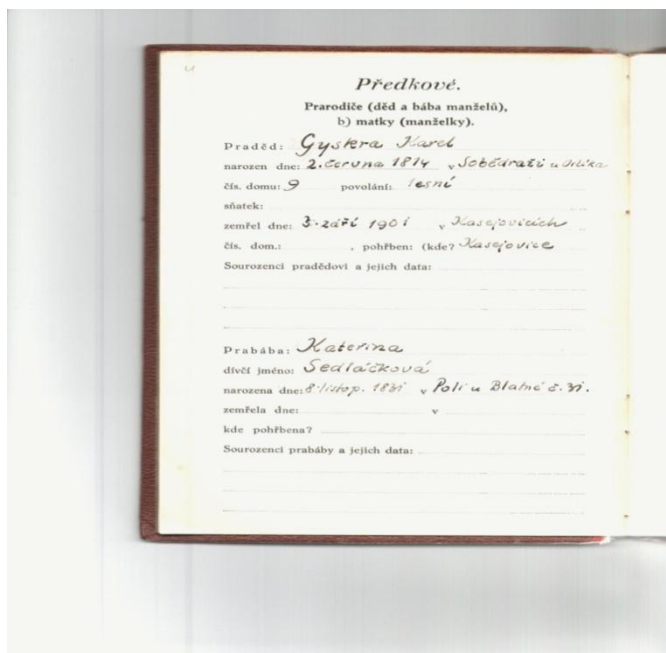 Předkové.
Prarodiče (děd a bába manželů),
b) matky (manželky).
Praděd: Gyskra Karel
narozen dne: 2. června 1814 v Sobědraži u Orlíka
čís. domu: 9 povolání: lesní
sňatek:
zemřel dne: 3. září 1901 v Kasejovicích
čís. dom.: , pohřben: (kde? Kasejovice
Sourozenci pradědovi a jejich data:
Prabába: Kateřina
dívčí jméno: Sedláčková
narozena dne: 8. listop. 1831 v Poli u Blatné č. 31.
zemřela dne: v
kde pohřbena?
Sourozenci prabáby a jejich data: